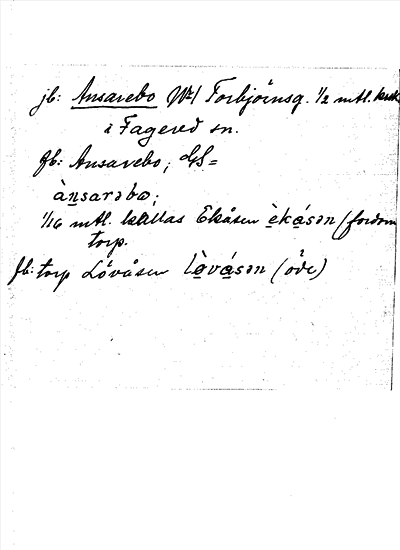 jb: Ansarebo No 1 Torbjörnsg. 1/2 mtl.
i Fagered sn.
fb: Ansarebo; GS=
ànsarəbω;
1/16 mtl. kallas Ekåsen èkásən (fordom
torp.
fb: torp Lövåsen lòvásən (öde)